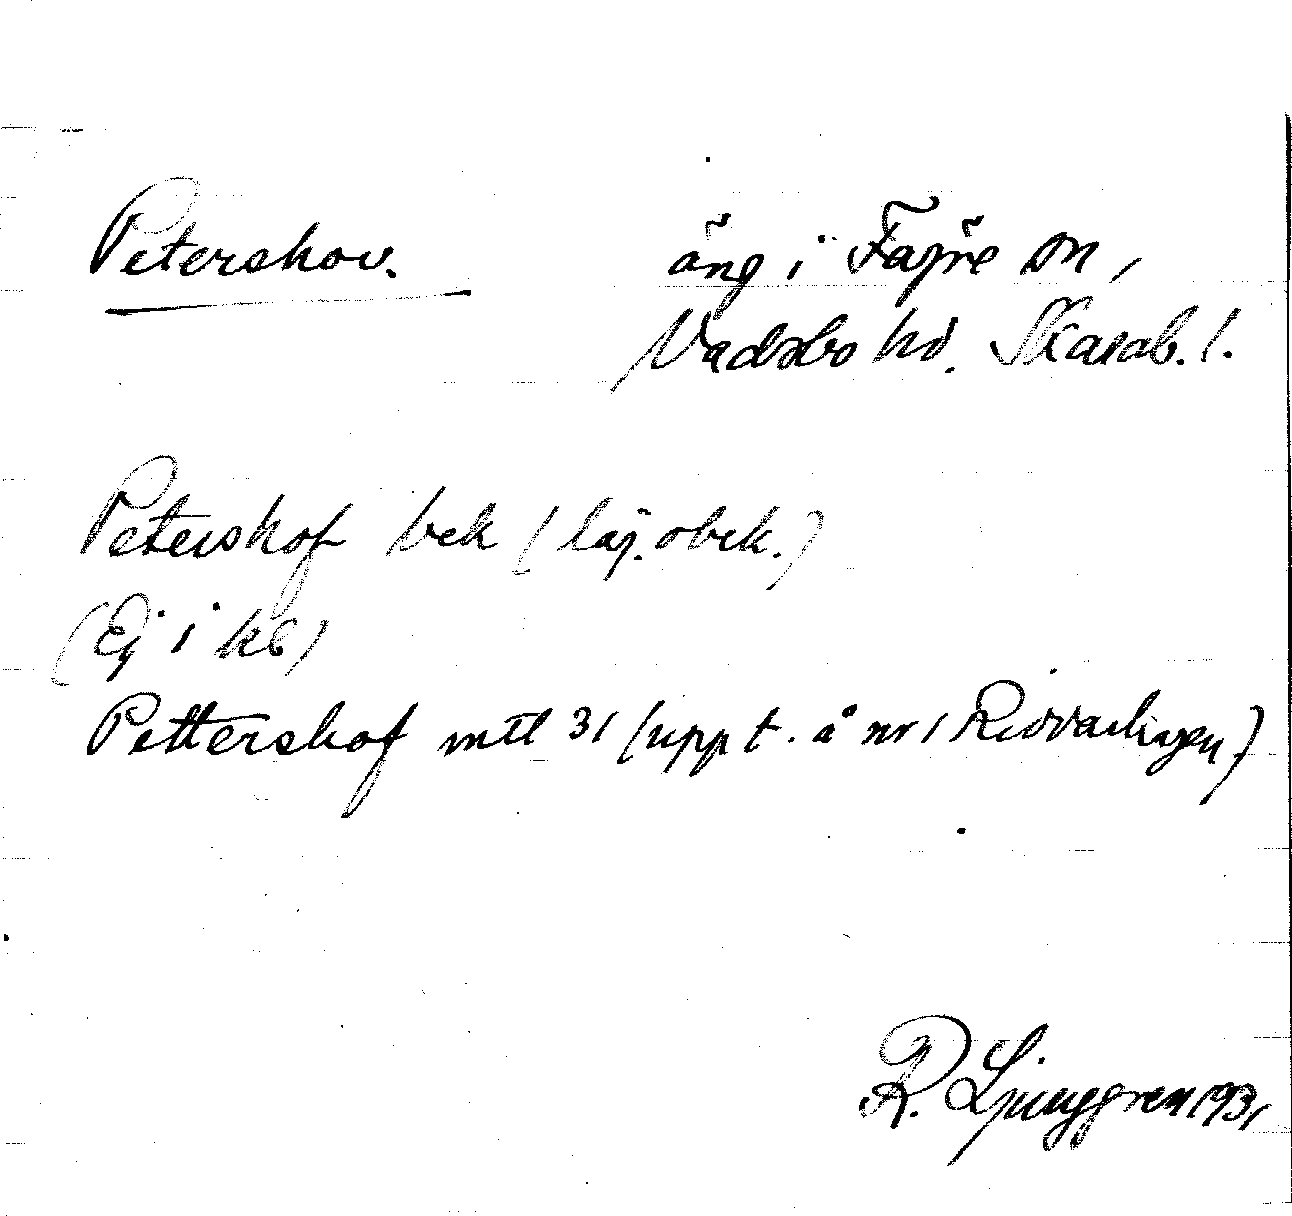 Petershov.
äng i Fägre sn,
Vadsbo hd. Skarab. l.
Petershof bek (läg. obek.)
(Ej i kb)
Pettershof mtl 31 (uppt. å nr 1 Riddarhagen)
R. Ljunggren 1931